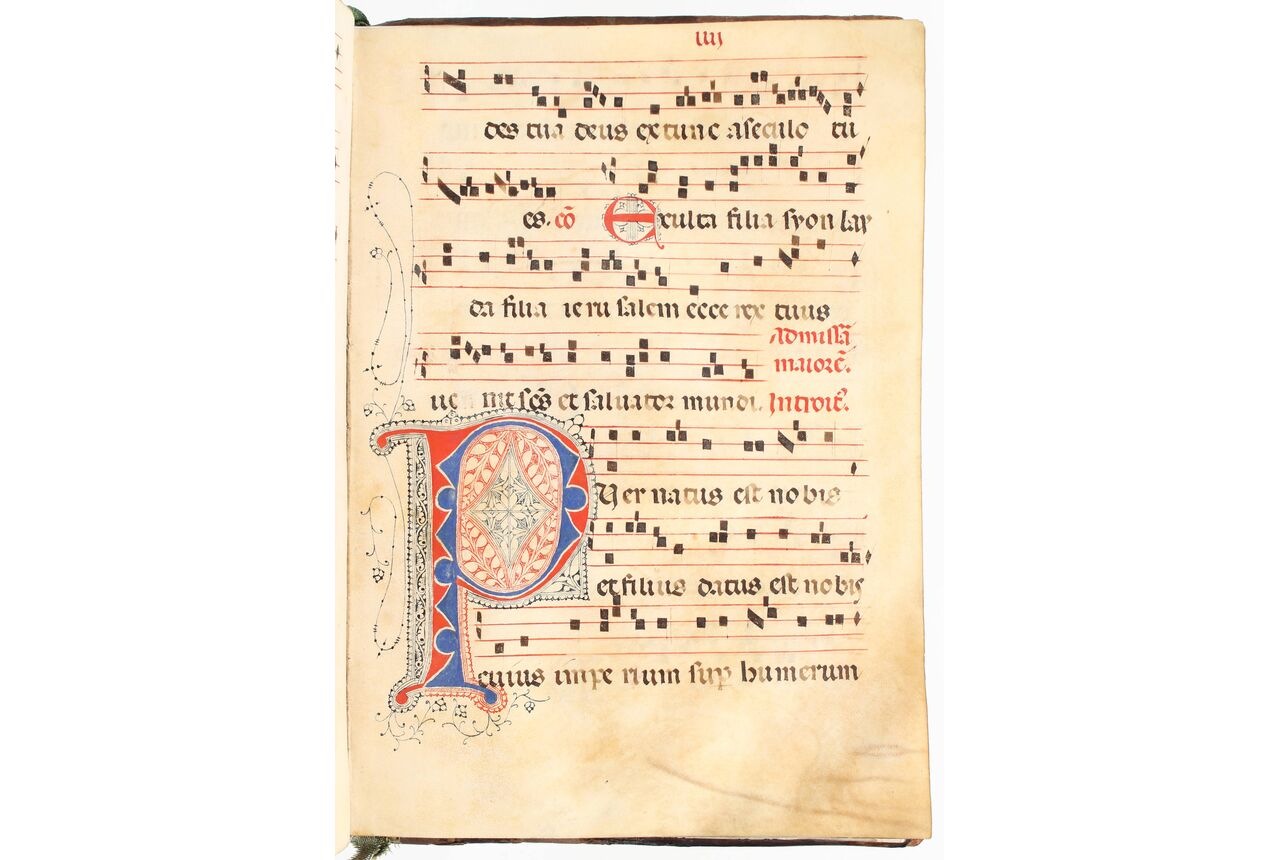 iiij
des tua deus ex tunc a seculo tu
es. cō Exulta filia syon lau
da filia ierusalem ecce rex tuus
Ad missā
maiorē.
uenit scs et saluator mundi. Introit.
PUer natus est nobis
et filius datus est nobis
cuius imperium sup humerum